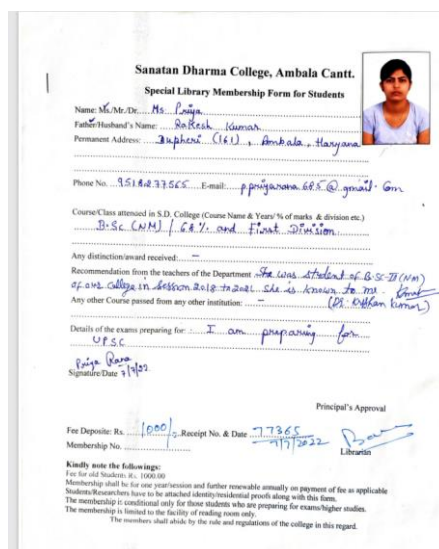 Sanatan Dharma College, Ambala Cantt.
Special Library Membership Form for Students
Name: Ms./Mr./Dr. Ms. Priya
Father/Husband's Name: Rakesh Kumar
Permanent Address: Dupheri (161), Ambala, Haryana
Phone No. E-mail: ppriyarana685@gmail.com
Course/Class attended in S.D. College (Course Name & Years/ % of marks & division etc.)
B.Sc (NM) / 68% and First Division
Any distinction/award received: -
Recommendation from the teachers of the Department She was student of B.Sc-III (NM)
of our college in Session 2018 to 2021. She is known to me.
Any other Course passed from any other institution: - (Dr. Krishan Kumar)
Details of the exams preparing for: I am preparing for
UPSC
Priya Rana
Signature/Date 7/7/22.
Principal's Approval
Fee Deposite: Rs. 1000/- Receipt No. & Date 77365
7/7/2022
Membership No. Librarian
Kindly note the followings:
Fee for old Students Rs. 1000.00
Membership shall be for one year/session and further renewable annually on payment of fee as applicable
Students/Researchers have to be attached identity/residential proofs along with this form.
The membership is conditional only for those students who are preparing for exams/higher studies.
The membership is limited to the facility of reading room only.
The members shall abide by the rule and regulations of the college in this regard.